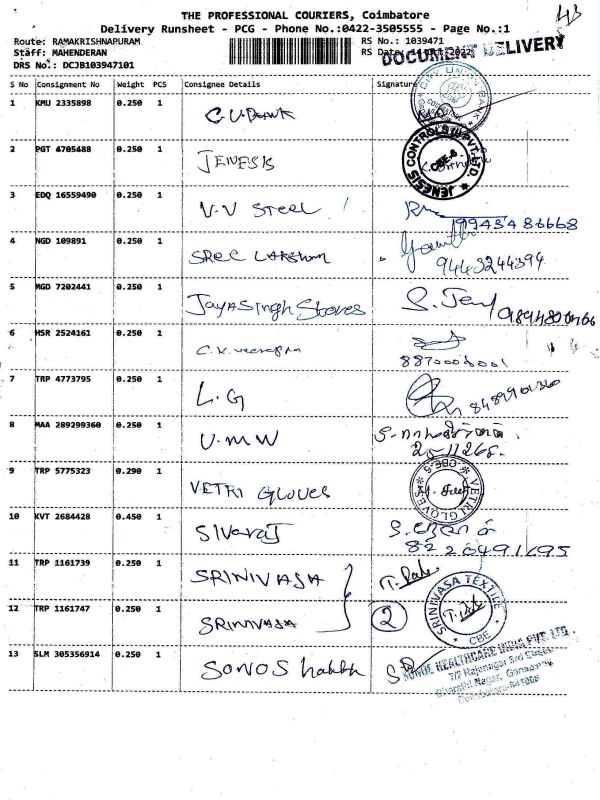 THE PROFESSIONAL COURIERS, Coimbatore
Delivery Runsheet - PCG - Phone No.:0422-3505555 - Page No.:1
Route: RAMAKRISHNAPURAM RS No.: 1039471
Staff: MAHENDERAN RS Date:
DRS No.: DCJB103947101
DOCUMENT DELIVERY
S No Consignment No Weight PCS Consignee Details Signature
1 KMU 2335898 0.250 1 C.U.Bank
CITY UNION BANK
2 PGT 4705488 0.250 1 JENESIS
JENESIS CONTROLS (I) PVT. LTD. CBE-6
3 EDQ 16559490 0.250 1 V.V Steel
9943486668
4 NGD 109891 0.250 1 SREE LAKSHMI
9443244394
5 MGD 7202441 0.250 1 Jayasingh Stoves S. Jey
6 HSR 2524161 0.250 1
7 TRP 4773795 0.250 1 L.G
8 MAA 289299360 0.250 1 U.M.W
9 TRP 5775323 0.290 1 VETRI GLOVES
VETRI GLOVES CBE-5
10 KVT 2684428 0.450 1 SIVARAJ
8220491695
11 TRP 1161739 0.250 1 SRINIVASA
12 TRP 1161747 0.250 1 SRINIVASA 2
SRINIVASA TEXTILE CBE
13 SLM 305356914 0.250 1
HEALTHCARE INDIA PVT. LTD.
7/2 Rajanagar 3rd Cross
Bharathi Nagar, Ganapathy